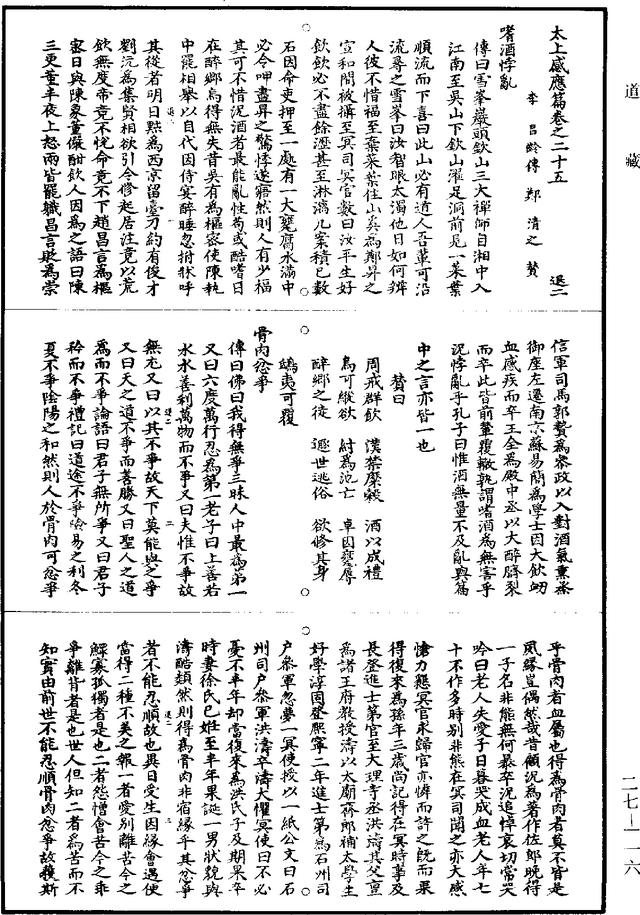 道藏
太上感應篇卷之二十五
李昌齡傳 鄭清之贊 退二
嗜酒悖亂
傳曰雪峯巖頭欽山三大禪師自湘中入
江南至吳山下欽山濯足澗前見一菜葉
順流而下喜曰此山必有道人吾輩可沿
流尋之雪峯曰汝智眼太濁他日如何辨
人彼不惜福至棄菜葉住山奚為鄭昇之
宣和間被攝至冥司冥官數曰汝平生好
飲飲必不盡餘瀝甚至淋漓几案積已數
石因命吏押至一處有一大甕腐水滿中
必令呷盡昇之驚悸遂寤然則人有少福
其可不惜況酒者最能亂性苟或酷嗜日
在醉鄉烏得無失昔吳有為樞密使陳執
中罷相舉以自代因侍宴醉睡忽拊牀呼
其從者明日黜為西京留臺刁約有俊才
劉沆為集賢相欲引令修起居注竟以荒
飲無度帝竟不悅命竟不下趙昌言為樞
密日與陳象董儼酣飲人因為之語曰陳
三更董半夜上怒而皆罷職昌言貶為崇
信軍司馬郭贄為叅政以入對酒氣熏烝
御座左遷南京蘇易簡為學士因大飲衂
血感疾而卒王全為殿中丞以大醉臍裂
而卒此皆前輩覆轍孰謂嗜酒為無害乎
況悖亂乎孔子曰惟酒無量不及亂與篇
中之言亦皆一也
贊曰
周戒群飲 漢禁糜穀 酒以成禮
烏可縱欲 紂為沈亡 卓因甕辱
醉鄉之徒 遯世逃俗 欲修其身
鴟夷可覆
骨肉忿爭
傳曰佛曰我得無爭三昧人中最為第一
又曰六度萬行忍為第一老子曰上善若
水水善利萬物而不爭又曰夫惟不爭故
無尤又曰以其不爭故天下莫能與之爭
又曰天之道不爭而善勝又曰聖人之道
為而不爭論語曰君子無所爭又曰君子
矜而不爭禮記曰道途不爭險易之利冬
夏不爭陰陽之和然則人於骨肉可忿爭
乎骨肉者血屬也得為骨肉者莫不皆是
夙緣豈偶然哉昔顧況為著作佐郎晚得
一子名非熊無何暴卒況追悼哀切常哭
吟曰老人失愛子日暮哭成血老人年七
十不作多時別非熊在冥司聞之亦大感
愴力懇冥官求歸官亦憐而許之旣而果
得復來為孫年三歲尚記得在冥時事及
長登進士第官至大理寺丞洪濤其父亶
為諸王府教授濤以太廟齋郎補太學生
好學淳固登熙寧二年進士第為石州司
戶叅軍忽夢一冥使授以一紙公文曰石
州司戶叅軍洪濤卒濤大懼冥使曰不必
憂不半年却當復來為洪氏子及期果卒
時妻徐氏已姙至半年果誕一男狀貌與
濤酷類然則得為骨肉非宿緣乎其忿爭
者不能忍順故也異日受生因緣會遇便
當得二種不美之報一者愛別離苦今之
鰥寡孤獨者是也二者怨憎會苦今之乖
爭離背者是也世人但知二者為苦而不
知實由前世不能忍順骨肉忿爭故獲斯
二七－一一六